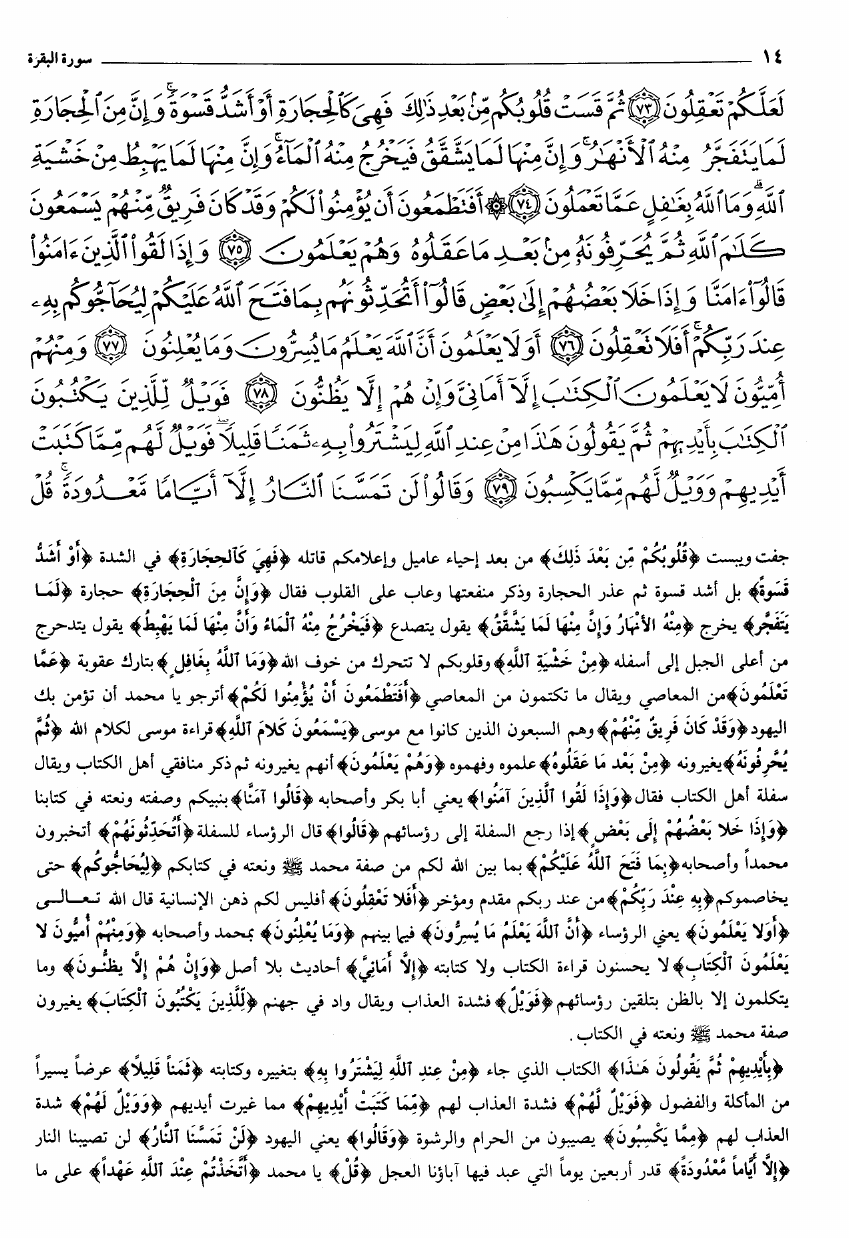 ١٤ سورة البقرة
لَعَلَّكُمْ تَعْقِلُونَ ﴿٧٣﴾ ثُمَّ قَسَتْ قُلُوبُكُم مِّنۢ بَعْدِ ذَٰلِكَ فَهِىَ كَٱلْحِجَارَةِ أَوْ أَشَدُّ قَسْوَةً ۚ وَإِنَّ مِنَ ٱلْحِجَارَةِ
لَمَا يَتَفَجَّرُ مِنْهُ ٱلْأَنْهَٰرُ ۚ وَإِنَّ مِنْهَا لَمَا يَشَّقَّقُ فَيَخْرُجُ مِنْهُ ٱلْمَآءُ ۚ وَإِنَّ مِنْهَا لَمَا يَهْبِطُ مِنْ خَشْيَةِ
ٱللَّهِ ۗ وَمَا ٱللَّهُ بِغَٰفِلٍ عَمَّا تَعْمَلُونَ ﴿٧٤﴾ ۞ أَفَتَطْمَعُونَ أَن يُؤْمِنُوا۟ لَكُمْ وَقَدْ كَانَ فَرِيقٌ مِّنْهُمْ يَسْمَعُونَ
كَلَٰمَ ٱللَّهِ ثُمَّ يُحَرِّفُونَهُۥ مِنۢ بَعْدِ مَا عَقَلُوهُ وَهُمْ يَعْلَمُونَ ﴿٧٥﴾ وَإِذَا لَقُوا۟ ٱلَّذِينَ ءَامَنُوا۟
قَالُوٓا۟ ءَامَنَّا وَإِذَا خَلَا بَعْضُهُمْ إِلَىٰ بَعْضٍ قَالُوٓا۟ أَتُحَدِّثُونَهُم بِمَا فَتَحَ ٱللَّهُ عَلَيْكُمْ لِيُحَآجُّوكُم بِهِۦ
عِندَ رَبِّكُمْ ۚ أَفَلَا تَعْقِلُونَ ﴿٧٦﴾ أَوَلَا يَعْلَمُونَ أَنَّ ٱللَّهَ يَعْلَمُ مَا يُسِرُّونَ وَمَا يُعْلِنُونَ ﴿٧٧﴾ وَمِنْهُمْ
أُمِّيُّونَ لَا يَعْلَمُونَ ٱلْكِتَٰبَ إِلَّآ أَمَانِىَّ وَإِنْ هُمْ إِلَّا يَظُنُّونَ ﴿٧٨﴾ فَوَيْلٌ لِّلَّذِينَ يَكْتُبُونَ
ٱلْكِتَٰبَ بِأَيْدِيهِمْ ثُمَّ يَقُولُونَ هَٰذَا مِنْ عِندِ ٱللَّهِ لِيَشْتَرُوا۟ بِهِۦ ثَمَنًا قَلِيلًا ۖ فَوَيْلٌ لَّهُم مِّمَّا كَتَبَتْ
أَيْدِيهِمْ وَوَيْلٌ لَّهُم مِّمَّا يَكْسِبُونَ ﴿٧٩﴾ وَقَالُوا۟ لَن تَمَسَّنَا ٱلنَّارُ إِلَّآ أَيَّامًا مَّعْدُودَةً ۚ قُلْ
جفت ويبست ﴿قُلُوبُكُمْ مِّن بَعْدَ ذَلِكَ﴾ من بعد إحياء عاميل وإعلامكم قاتله ﴿فَهِيَ كَٱلحِجَارَةِ﴾ في الشدة ﴿أَوْ أَشَدُّ
قَسْوَةً﴾ بل أشد قسوة ثم عذر الحجارة وذكر منفعتها وعاب على القلوب فقال ﴿وَإِنَّ مِنَ ٱلْحِجَارَةِ﴾ حجارة ﴿لَمَا
يَتَفَجَّر﴾ يخرج ﴿مِنْهُ الأنْهَارُ وَإِنَّ مِنْهَا لَمَا يَشَّقَّقُ﴾ يقول يتصدع ﴿فَيَخْرُجُ مِنْهُ ٱلْمَاءُ وَأَنَّ مِنْهَا لَمَا يَهْبِطُ﴾ يقول يتدحرج
من أعلى الجبل إلى أسفله ﴿مِنْ خَشْيَةِ ٱللَّهِ﴾ وقلوبكم لا تتحرك من خوف الله ﴿وَمَا ٱللَّهُ بِغَافِلٍ﴾ بتارك عقوبة ﴿عَمَّا
تَعْلَمُونَ﴾ من المعاصي ويقال ما تكتمون من المعاصي ﴿أَفَتَطْمَعُونَ أَنْ يُؤْمِنُوا لَكُمْ﴾ أترجو يا محمد أن تؤمن بك
اليهود ﴿وَقَدْ كَانَ فَرِيقٌ مِّنْهُمْ﴾ وهم السبعون الذين كانوا مع موسى ﴿يَسْمَعُونَ كَلَامَ ٱللَّهِ﴾ قراءة موسى لكلام الله ﴿ثُمَّ
يُحَّرِفُونَهُ﴾ يغيرونه ﴿مِنْ بَعْد مَا عَقَلُوهُ﴾ علموه وفهموه ﴿وَهُمْ يَعْلَمُونَ﴾ أنهم يغيرونه ثم ذكر منافقي أهل الكتاب ويقال
سفلة أهل الكتاب فقال ﴿وَإِذَا لَقُوا ٱلَّذِينَ آمَنُوا﴾ يعني أبا بكر وأصحابه ﴿قَالُوا آمَنَّا﴾ بنبيكم وصفته ونعته في كتابنا
﴿وَإِذَا خَلا بَعْضُهُمْ إِلَى بَعْضٍ﴾ إذا رجع السفلة إلى رؤسائهم ﴿قَالُوا﴾ قال الرؤساء للسفلة ﴿أَتُحَدِّثُونَهُمْ﴾ أتخبرون
محمداً وأصحابه ﴿بِمَا فَتَحَ ٱللَّهُ عَلَيْكُمْ﴾ بما بين الله لكم من صفة محمد ﷺ ونعته في كتابكم ﴿لِيُحَاجُّوكُم﴾ حتى
يخاصموكم ﴿بِهِ عِنْدَ رَبِّكُمْ﴾ من عند ربكم مقدم ومؤخر ﴿أَفَلا تَعْقِلُونَ﴾ أفليس لكم ذهن الإنسانية قال الله تـعـالـى
﴿أَوَلا يَعْلَمُونَ﴾ يعني الرؤساء ﴿أَنَّ ٱللَّهَ يَعْلَمُ مَا يُسِرُّونَ﴾ فيما بينهم ﴿وَمَا يُعْلِنُونَ﴾ بمحمد وأصحابه ﴿وَمِنْهُمْ أُمِّيُّونَ لا
يَعْلَمُونَ ٱلْكِتَابِ﴾ لا يحسنون قراءة الكتاب ولا كتابته ﴿إِلَّا أَمَانِيَّ﴾ أحاديث بلا أصل ﴿وَإِنْ هُمْ إِلَّا يظنُّونَ﴾ وما
يتكلمون إلا بالظن بتلقين رؤسائهم ﴿فَوَيْلٌ﴾ فشدة العذاب ويقال واد في جهنم ﴿لِّلَّذِينَ يَكْتُبُونَ ٱلْكِتَابَ﴾ يغيرون
صفة محمد ﷺ ونعته في الكتاب.
﴿بِأَيْدِيهِمْ ثُمَّ يَقُولُونَ هَٰذَا﴾ الكتاب الذي جاء ﴿مِنْ عِندِ ٱللَّهِ لِيَشْتَرُوا بِهِ﴾ بتغييره وكتابته ﴿ثَمَناً قَلِيلاً﴾ عرضاً يسيراً
من المأكلة والفضول ﴿فَوَيْلٌ لَّهُمْ﴾ فشدة العذاب لهم ﴿مِّمَّا كَتَبَتْ أَيْدِيهِمْ﴾ مما غيرت أيديهم ﴿وَوَيْلٌ لَهُمْ﴾ شدة
العذاب لهم ﴿مِمَّا يَكْسِبُونَ﴾ يصيبون من الحرام والرشوة ﴿وَقَالُوا﴾ يعني اليهود ﴿لَنْ تَمَسَّنَا ٱلنَّارُ﴾ لن تصيبنا النار
﴿إِلَّا أَيَّاماً مَّعْدُودَةً﴾ قدر أربعين يوماً التي عبد فيها آباؤنا العجل ﴿قُلْ﴾ يا محمد ﴿أَتَّخَذْتُمْ عِنْدَ ٱللَّهِ عَهْداً﴾ على ما